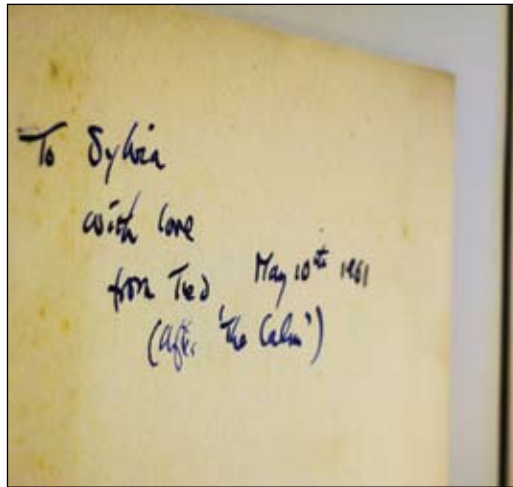 To Sylvia
with love
from Ted, May 10th 1961
(after 'The Calm')